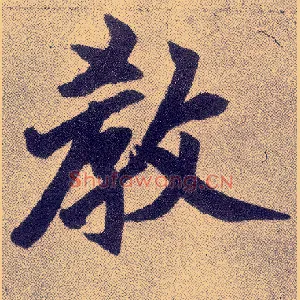 教
Shufawang.cn